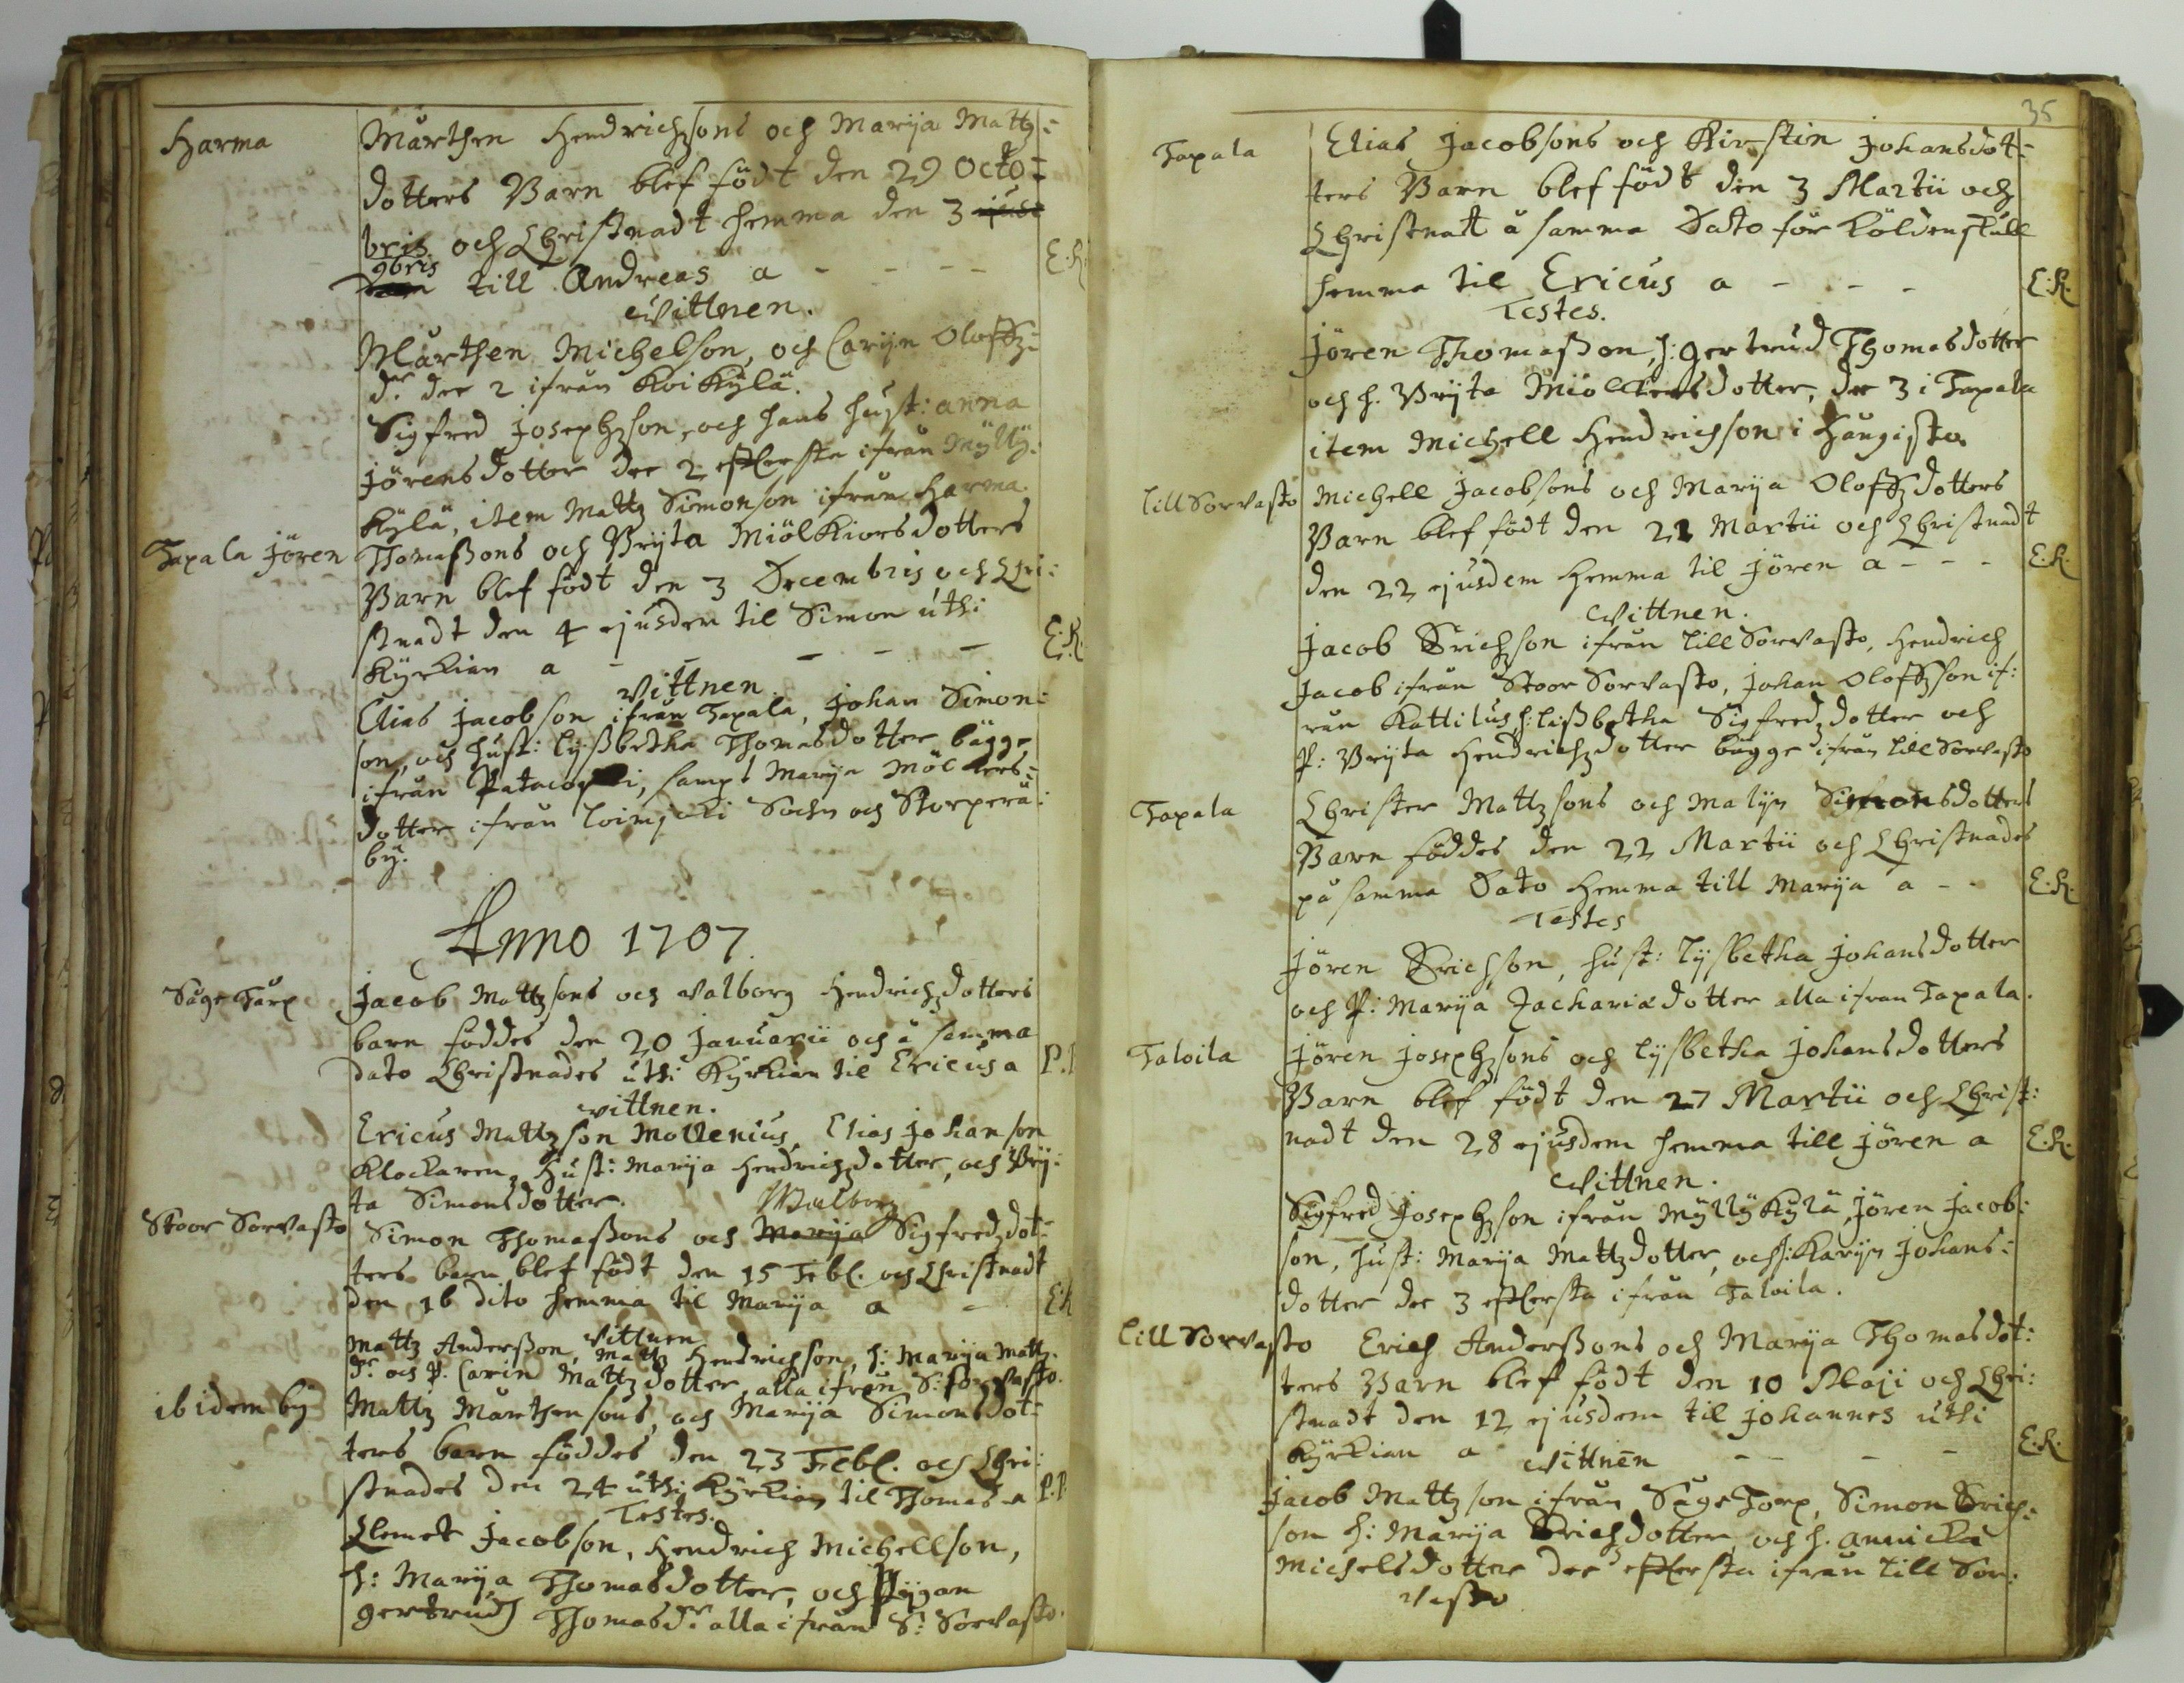 Harma
Mårthen Hendrichzsons och Marija Mattz=
dotters Barn blef födt den 29 Octo=
bris och Christnadt hemma den 3
9bris till Andreas a - - - - E.K.
Vittnen.
Mårthen Michelson, och Carijn Oloffz=
dr. der 2 ifrån Koikÿlä.
Sigfred Josephzson, och hans hust: anna
Jörensdotter der 2 efterste ifrån Mÿllÿ:
kÿlä, item Mattz Simonson ifrån Harma.
Tapala Jören Thomassons och Brÿta Miölkiorsdotters
Barn blef födt den 3 Decembris och Chri:
stnadt den 4 ejusdem til Simon uthi
Kÿrkian a - - - - - E.K.
Vittnen.
Elias Jacobson ifrån Tapala, Johan Simon:
son, och hust: lÿssbetha Thomasdotter bägge
ifrån, sampt Marija Mölkers=
dotter ifrån loimjoki Sochn och Storperä
bÿ.
Anno 1707.
Såge Tårp
Jacob Mattzsons och Valborg Hendrichzdotters
barn föddes den 20 Januarii och å samma
dato Christnades uthi Kÿrkian til Ericus a P.P.
vittnen.
Ericus Mattzson Mollenius, Elias Johanson
Klockaren, Hust: Marija Hendrichzdotter, och Brÿ:
ta Simonsdotter.
Walborg
Stoor Sorvasto Simon Thomassons och Marija Sigfredzdot=
ters barn blef födt den 15 Febl. och Christnadt
den 16 dito hemma til Marija a - E.K.
Vittnen
Mattz Andersson, Mattz Hendrichson, h: Marija Mattz
dr. och P. Carin Mattzdotter, alla ifrån S: Sorvasto.
ibidem bÿ Mattz Mårthensons, och Marija Simonsdot=
ters barn föddes den 23 Febl. och Chri:
stnades den 24 uthi Kÿrkian til Thomas a P.P.
Testes.
Clemet Jacobson, Hendrich Michellson,
h: Marija Thomasdotter, och Pÿgan
gertrud Thomasdr. alla ifrån S: Sorvasto.
35
Tapala
Elias Jacobsons och Kirstin Johansdot=
ters Barn blef födt den 3 Martii och
Christnatt å samma Dato för köldenskull
hemma til Ericus a - - - E.K.
Testes.
Jören Thomasson, h: gertrud Thomasdotter
och h. Brÿta Miölkersdotter, der 3 i Tapala
item Michell Hendrichson i Haugisto.
lill Sorvasto Michell Jacobsons och Marija Oloffzdotters
Barn blef födt den 21 Martii och Christnadt
den 22 ejusdem Hemma til Jören a - - - E.K.
Vittnen.
Jacob Erichson ifrån lill Sorvasto, Hendrich
Jacob ifrån Stoor Sorvasto, Johan Oloffzson if:
rån Kattilus, h: lissbetha Sigfredzdotter och
P: Brÿta Hendrichzdotter bägge ifrån lill Sorvasto
Tapala
Christer Mattzsons och Malijn Simonsdotters
Barn föddes den 22 Martii och Christnades
på samma Dato Hemma till Marija a - - E.K.
Testes
Jören Erichson, hust: lÿsbetha Johansdotter
och P: Marija Zachariædotter alla ifrån Tapala.
Taloila
Jören Josephzsons och lÿsbetha Johansdotters
Barn blef födt den 27 Martii och Christ:
nadt den 28 ejusdem hemma till Jören a E.K.
Vittnen.
Sigfred Josephzson ifrån Mÿllÿkÿlä, Jören Jacob:
son, hust: Marija Mattzdotter, och h: Karijn Johans:
dotter der 3 efterste ifrån Taloila.
lill Sorvasto Erich Anderssons och Marija Thomasdot:
ters Barn blef födt den 10 Maji och Chri:
stnadt den 12 ejusdem til Johannes uthi
Kÿrkian a - - - - E.K.
Vittnen
Jacob Mattzson ifrån Såge Torp, Simon Erich:
son h: Marija Erichdotter, och h. annicka
Michelsdotter der 3 efterste ifrån lill Sor:
vasto